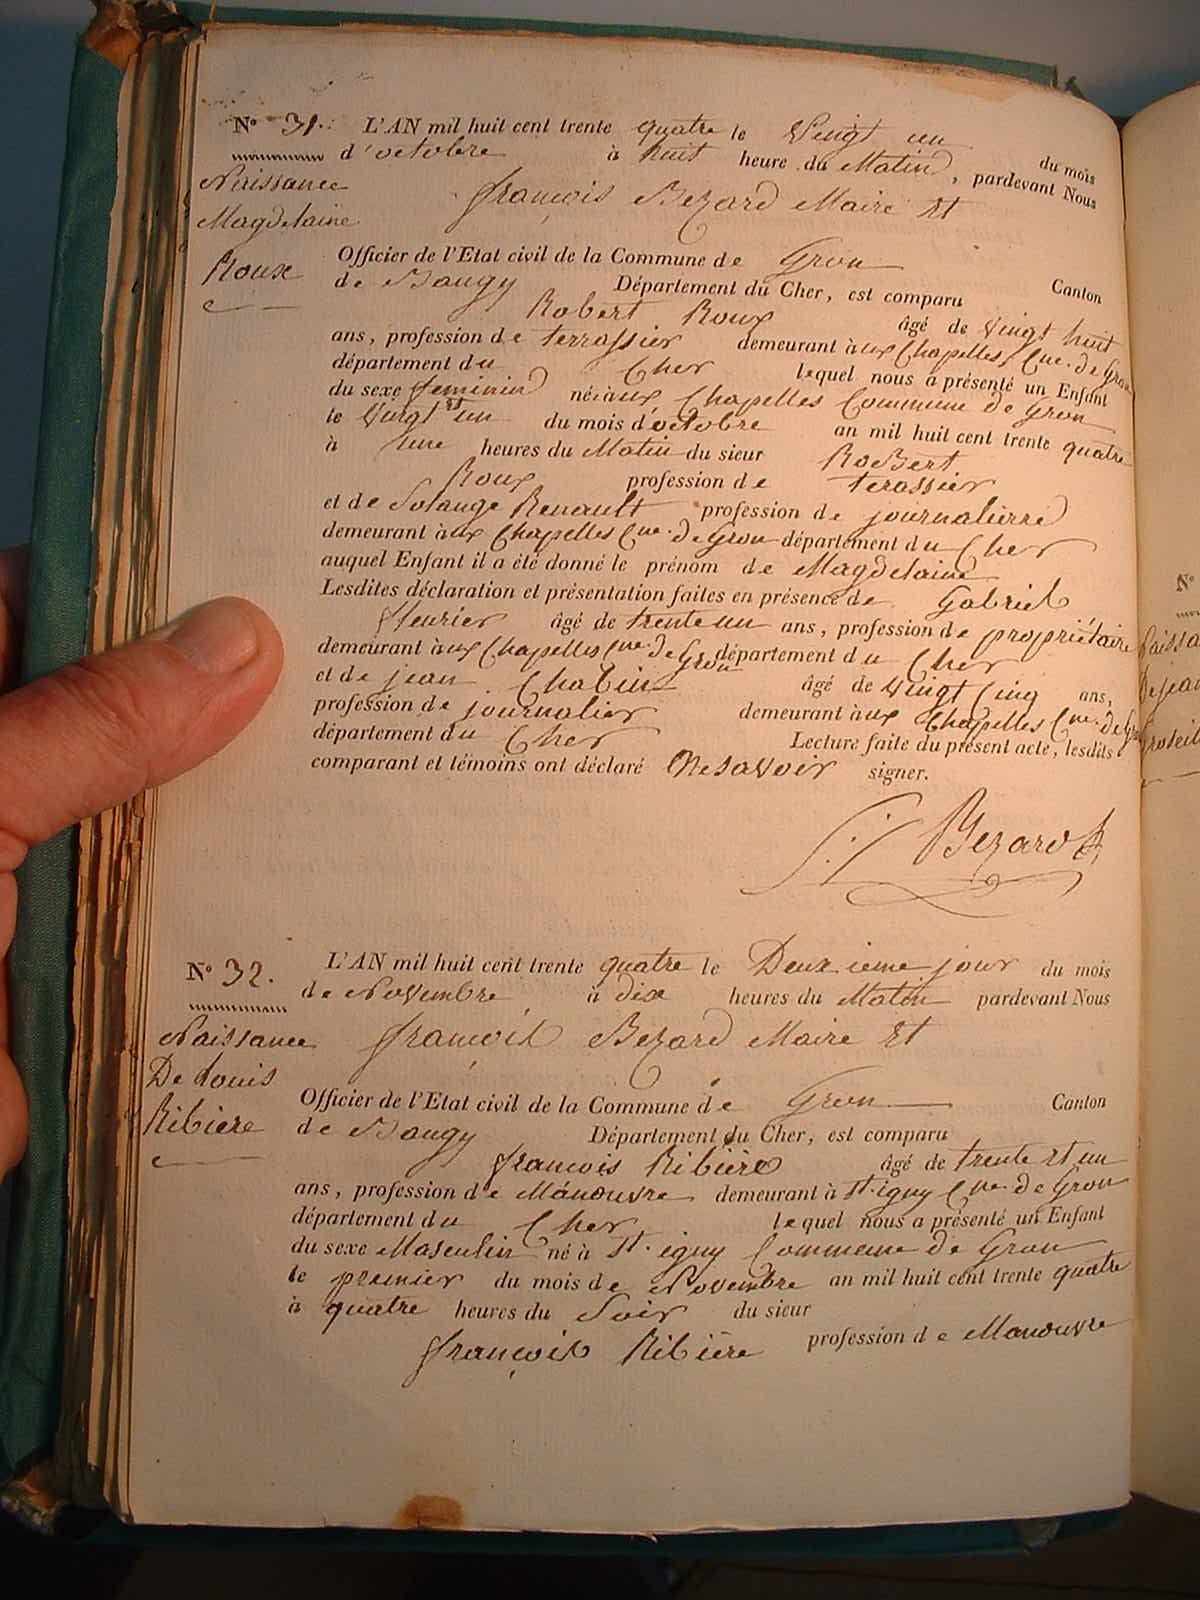 N° 31. L'AN mil huit cent trente quatre le Vingt un du mois
d'octobre à huit heure du Matin, pardevant Nous
Naissance
Magdelaine
Roux
françois Bezard Maire Et
Officier de l'Etat civil de la Commune de Gron Canton
de Baugy Département du Cher, est comparu
Robert Roux âgé de Vingt huit
ans, profession de terrassier demeurant à aux Chapelles Cne. de Gron
département du Cher lequel nous a présenté un Enfant
du sexe feminin né à aux Chapelles Commune de Gron
le Vingt et un du mois d'octobre an mil huit cent trente quatre
à une heures du Matin du sieur RoBert
Roux profession de terassier
et de Solange Renault profession de journalierre
demeurant à aux Chapelles Cne. de Gron département du Cher
auquel Enfant il a été donné le prénom de Magdelaine
Lesdites déclaration et présentation faites en présence de Gabriel
fleurier âgé de trente un ans, profession de propriétaire
demeurant à aux Chapelles Cne. de Gron département du Cher
et de jean Chabin âgé de Vingt Cinq ans,
profession de journalier demeurant à aux Chapelles Cne. de Gron
département du Cher Lecture faite du présent acte, lesdits
comparant et témoins ont déclaré Ne savoir signer.
Bezard
N° 32. L'AN mil huit cent trente quatre le Deuxieme jour du mois
de Novembre à dix heures du Matin pardevant Nous
Naissance
De Louis
Ribiere
françois Bezard Maire Et
Officier de l'Etat civil de la Commune de Gron Canton
de Baugy Département du Cher, est comparu
françois Ribière âgé de trente Et un
ans, profession de Manouvre demeurant à St. igny Cne de Gron
département du Cher lequel nous a présenté un Enfant
du sexe Masculin né à St. igny Commune de Gron
le premier du mois de Novembre an mil huit cent trente quatre
à quatre heures du Soir du sieur
françois Ribière profession de Manouvre
N°